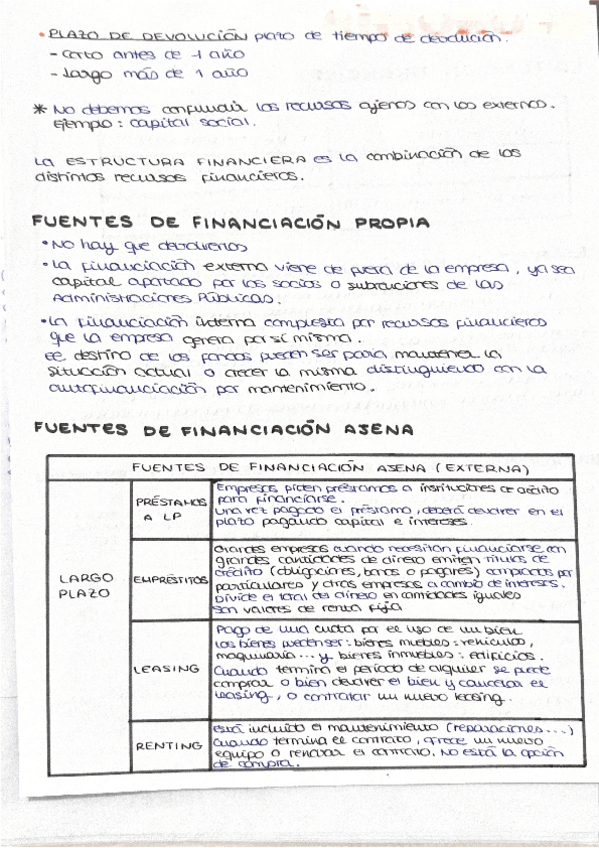 • PLAZO DE DEVOLUCIÓN plazo de tiempo de devolución.
- Corto antes de 1 año
- Largo más de 1 año
* No debemos confundir los recursos ajenos con los externos.
Ejemplo: capital social.
La ESTRUCTURA FINANCIERA es la combinación de los
distintos recursos financieros.
FUENTES DE FINANCIACIÓN PROPIA
• No hay que devolverlos
• La financiación externa viene de fuera de la empresa, ya sea
capital aportado por los socios o subvenciones de las
Administraciones Públicas.
• La financiación interna compuesta por recursos financieros
que la empresa genera por sí misma.
El destino de los fondos pueden ser para mantener la
situación actual o crecer la misma distinguiendo con la
autofinanciación por mantenimiento.
FUENTES DE FINANCIACIÓN AJENA
FUENTES DE FINANCIACIÓN AJENA (EXTERNA)
LARGO
PLAZO
PRÉSTAMOS
A LP
Empresas piden préstamos a instituciones de crédito
para financiarse.
Una vez pagado el préstamo, deberá devolver en el
plazo pagando capital e intereses.
EMPRÉSTITOS
Grandes empresas cuando necesitan financiarse con
grandes cantidades de dinero emiten títulos de
crédito (obligaciones, bonos o pagarés) comprados por
particulares y otras empresas a cambio de intereses.
Divide el total del dinero en cantidades iguales
Son valores de renta fija
LEASING
Pago de una cuota por el uso de un bien
Los bienes pueden ser: bienes muebles: vehículo,
maquinaria... y bienes inmuebles: edificios.
Cuando termina el período de alquiler se puede
comprar o bien devolver el bien y cancelar el
leasing, o contratar un nuevo leasing.
RENTING
Está incluido el mantenimiento (reparaciones...)
Cuando termina el contrato, ofrece un nuevo
equipo o renovar el contrato. No está la opción
de compra.